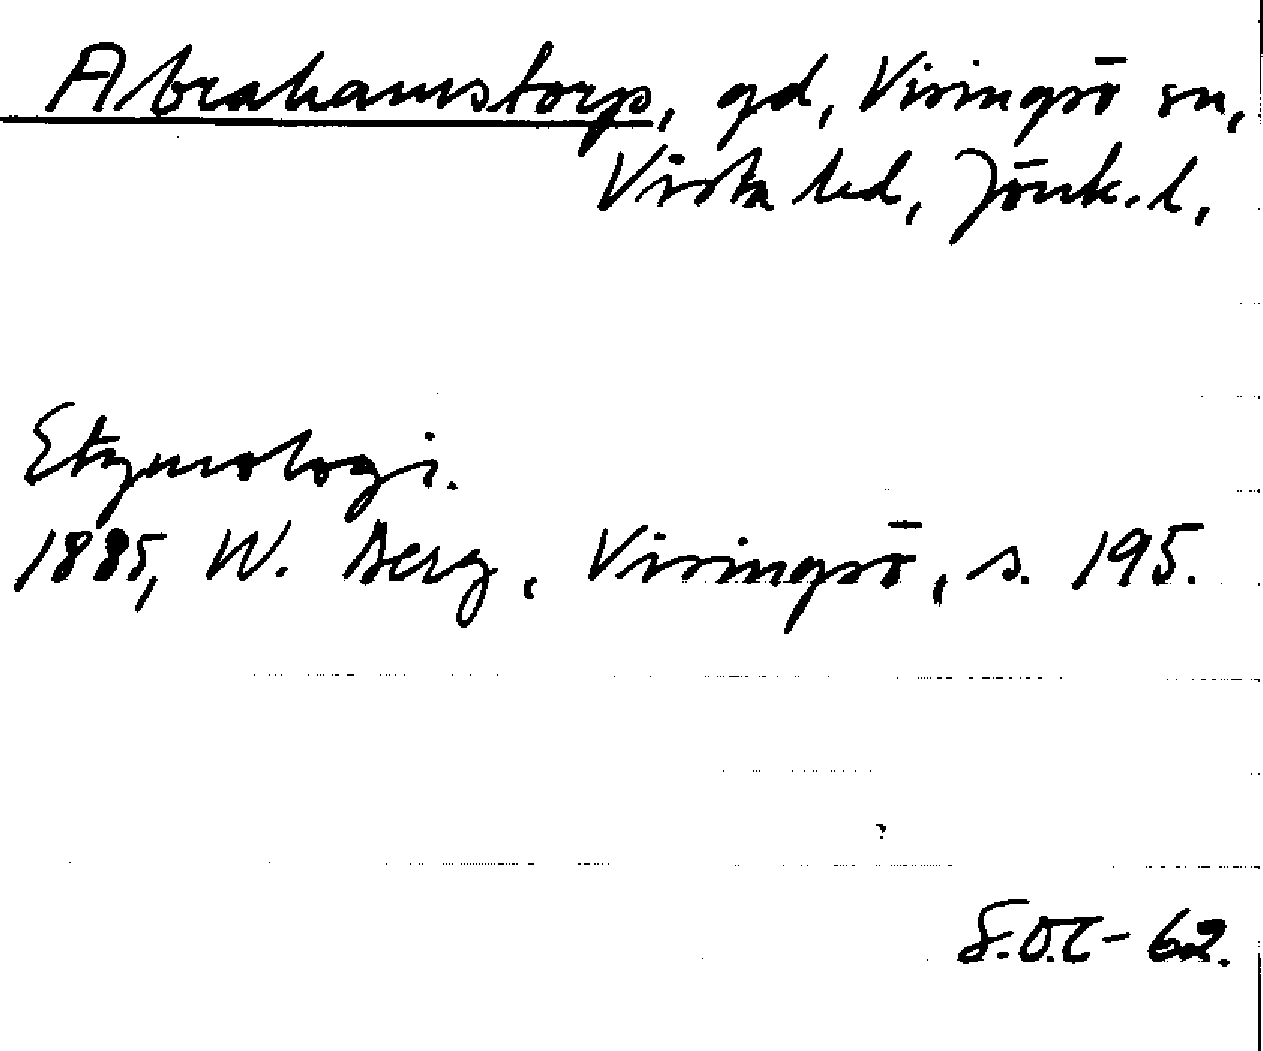 Abrahamstorp, gd, Visingsö sn,
Vista hd, Jönk. l,
Etymologi.
1885, W. Berg, Visingsö, s. 195.
S.O.C-62.